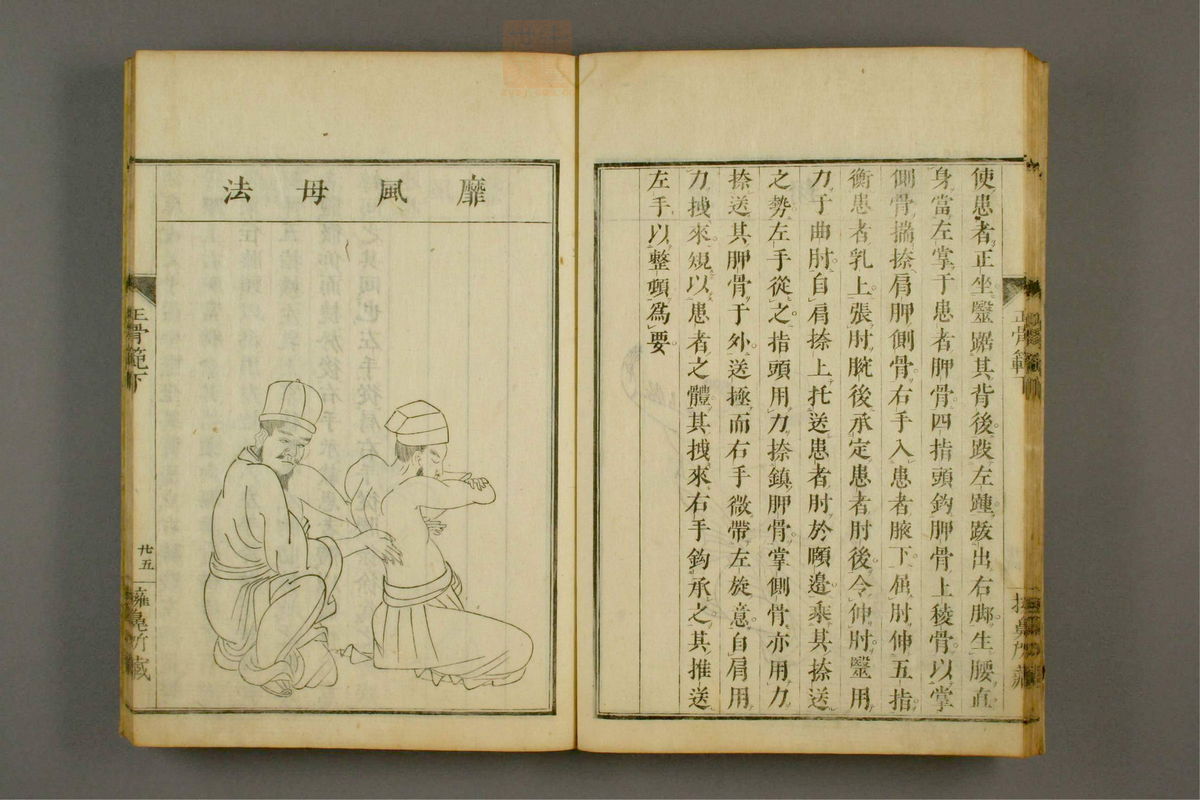 使患者正坐毉踞其背後跋左踵跋出右脚生腰直
身當左掌于患者胛骨四指頭鈎胛骨上稜骨以掌
側骨揣捺肩胛側骨右手入患者腋下屈肘伸五指
衡患者乳上張肘腕後承定患者肘後令伸肘毉用
力于曲肘自肩捺上托送患者肘於頤邉乘其捺送
之勢左手從之指頭用力捺鎮胛骨掌側骨亦用力
捺送其胛骨于外送極而右手微帶左旋意自肩用
力拽來規以患者之體其拽來右手鈎承之其推送
左手以整頓爲要
正骨範下
靡風母法
正骨範下
廿五